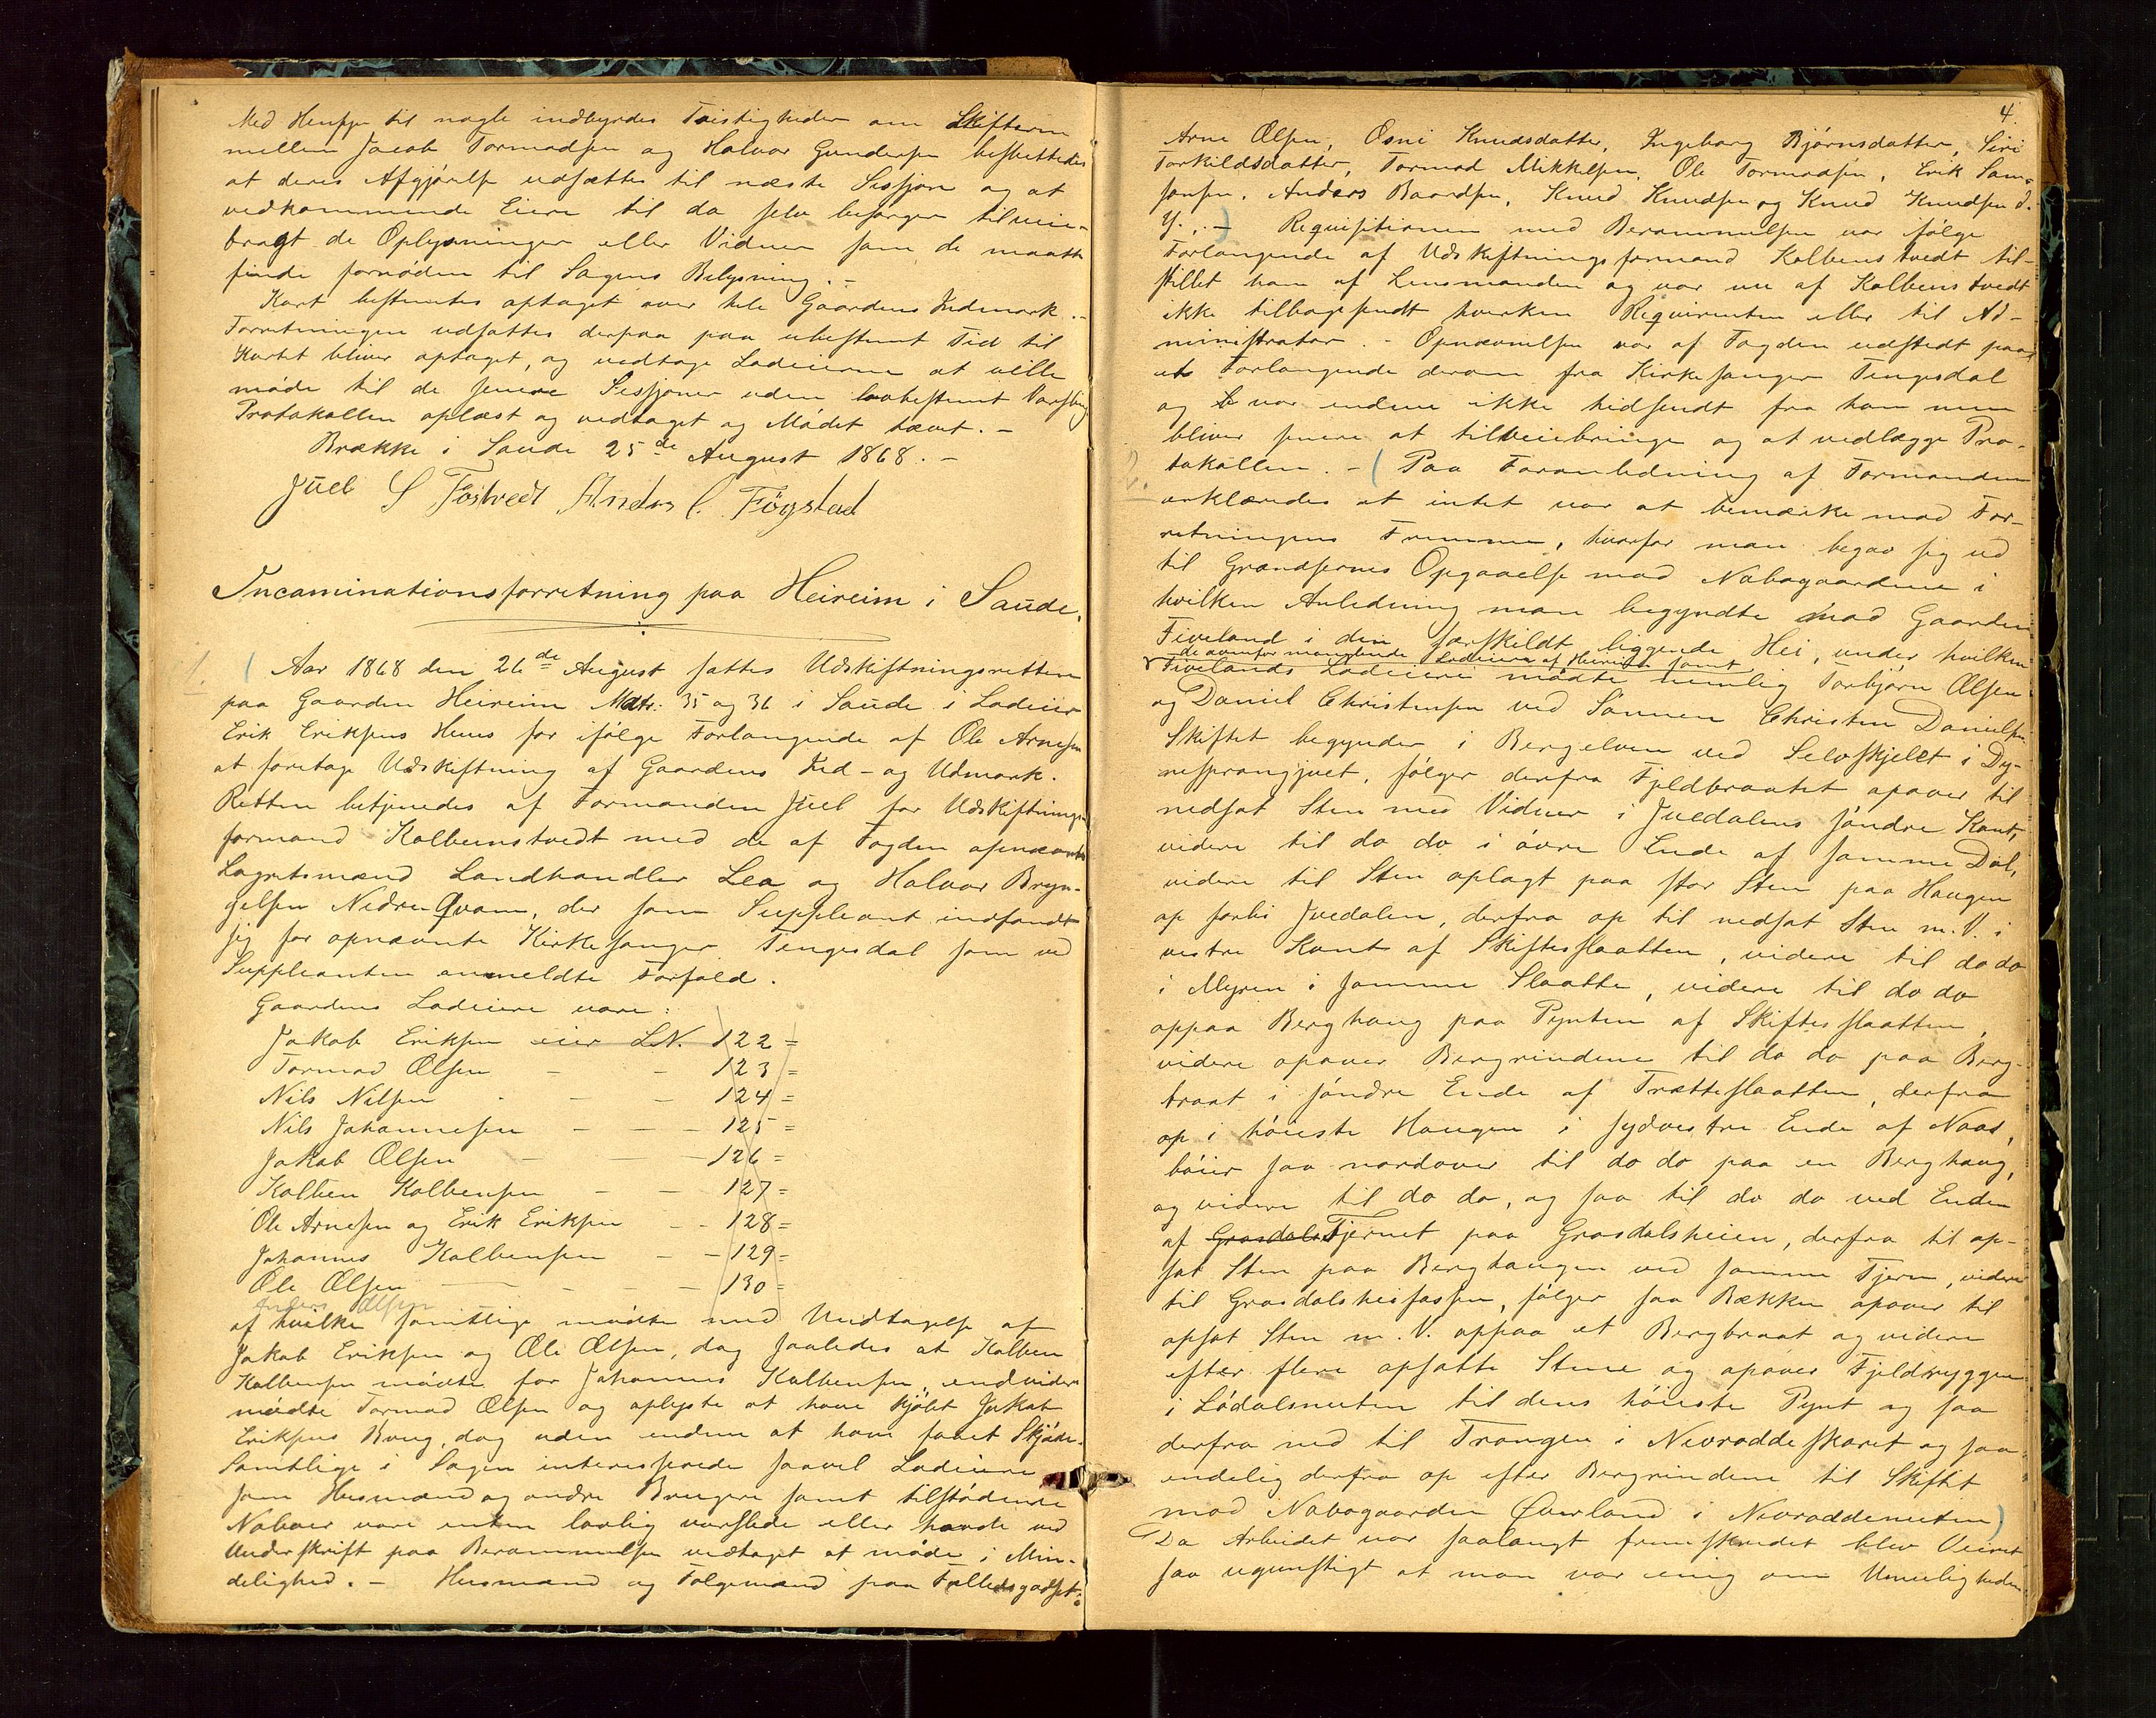 Med Hensyn til nogle indbyrdes Tvistigheder om Skifterne
mellem Jacob Tormodsen og Halvor Gundersen besluttedes
at deres Afgjørelse udsættes til næste Sessjon og at
vedkommende Eiere til da selv besørger tilveie-
bragt de Oplysninger eller Vidner som de maatte
finde fornøden til Sagens Belysning. -
Kart bestemtes optaget over hele Gaardens Indmark. -
Forretningen udsattes derpaa paa ubestemt Tid til
Kartet bliver optaget, og vedtoge Lodeierne at ville
møde til de senere Sessjoner uden lovbestemt Varsling
Protokollen oplæst og vedtaget og Mødet hævet. -
Brække i Saude 25de August 1868. -
Juel S Fostvedt Anders C. Fögstad
Incaminationsforretning paa Heireim i Saude.
1. ( Aar 1868 den 26de August sattes Udskiftningsretten
paa Gaarden Heireim Matr: 35 og 36 i Saude i Lodeier
Erik Eriksens Huus for ifølge Forlangende af Ole Arnesen
at foretage Udskiftning af Gaardens Ind- og Udmark.
Retten betjenedes af Formanden Juel for Udskiftnings-
formand Kolbenstvedt med de af Fogden opnævnte
Lagretsmænd Landhandler Lea og Halvor Bryn-
gelsen Nedre Qvam, der som Suppleant indfandt
sig for opnævnte Kirkesanger Tengesdal som ved
Suppleanten anmeldte Forfald.
Gaardens Lodeiere vare:
Jakob Eriksen eier LN. 122 =
Tormod Olsen - - 123 =
Nils Nilsen - - - 124 =
Nils Johannesen - - - 125 =
Jakob Olsen - - - 126 =
Kolben Kolbensen - - 127 =
Ole Arnesen og Erik Eriksen - - 128 =
Johannes Kolbensen - - 129 -
Ole Olsen - - - 130 =
Anders Olsen
af hvilke samtlige mødte med Undtagelse af
Jakob Eriksen og Ole Olsen, dog saaledes at Kolben
Kolbensen mødte for Johannes Kolbensen, endvidere
mødte Tormod Olsen og oplyste at have kjøbt Jakob
Eriksens Brug, dog uden endnu at have faaet Skjøde.
Samtlige i Sagen interesserede saavel Lodeiere
som Husmænd og andre Brugere samt tilstødende
Naboer vare enten lovlig varslede eller havde ved
Underskrift paa Berammelsen vedtaget at møde i Min-
delighed. - Husmænd og Folgemænd paa Fælledsgodset:
4.
Arne Olsen, Osni Knudsdatter, Ingeborg Bjørnsdatter, Siri
Torkildsdatter, Tormod Mikkelsen, Ole Tormodsen, Erik Sam-
sonsen, Anders Baardsen, Knud Knudsen og Knud Knudsen d.
y. . - ) Requisitionen med Berammelsen var ifølge
Forlangende af Udskiftningsformand Kolbenstvedt til-
stillet ham af Lensmanden og var nu af Kolbenstvedt
ikke tilbagesendt hverken Requirenten eller til Ad-
ministrator. - Opnævnelsen var af Fogden udstedt paa
et Forlangende derom fra Kirkesanger Tengesdal
og var endnu ikke hidsendt fra ham men
bliver senere at tilveiebringe og at vedlægge Pro-
tokollen. -
2. ( Paa Foranledning af Formanden
erklæredes at intet var at bemærke mod For-
retningens Fremme, hvorfor man begav sig ud
til Grændsernes Opgaaelse mod Nabogaardene i
hvilken Anledning man begyndte mod Gaarden
Fiveland i den særskildt liggende Hei, under hvilken
de ovenfor manglende Lodeiere af Heireim samt
Fivelands Lodeiere mødte nemlig Torbjørn Olsen
og Daniel Christensen ved Sønnen Christen Danielsen
Skiftet begynder i Bergelven ved Selvskjelet i Dy-
nesprangjuet, følger derfra Fjeldbraatet opover til
nedsat Sten med Vidner i Juedalens søndre Kant,
videre til do do i øvre Ende af samme Dal,
videre til Sten oplagt paa stor Sten paa Haugen
op forbi Juedalen, derfra op til nedsat Sten m. V. i
vestre Kant af Skiftesslaatten, videre til do do
i Myren i samme Slaatte, videre til do do
oppaa Berghaug paa Pynten af Skiftesslaatten,
videre opover Bergrindene til do do paa Berg-
braat i søndre Ende af Trætteslaatten, derfra
op i høieste Haugen i sydvestre Ende af Naas,
bøier saa nordover til do do paa en Berghaug,
og videre til do do, og saa til do do ved Enden
af Grosdals Tjernet paa Grosdalsheien, derfra til op-
sat Sten paa Berghaugen ved samme Tjern, videre
til Grosdalsheifossen, følger saa Bækken opover til
opsat Sten m. V. oppaa et Bergbraat og videre
efter flere opsatte Stene og opover Fjeldryggen
i Lødalsnuten til dens høieste Pynt og saa
derfra ned til Trangen i Nevroddeskaret og saa
endelig derfra op efter Bergrindene til Skiftet
mod Nabogaarden Øverland i Nevroddenuten)
Da Arbeidet var saalangt fremskredet blev Veiret
saa ugunstigt at man var enig om Umueligheden